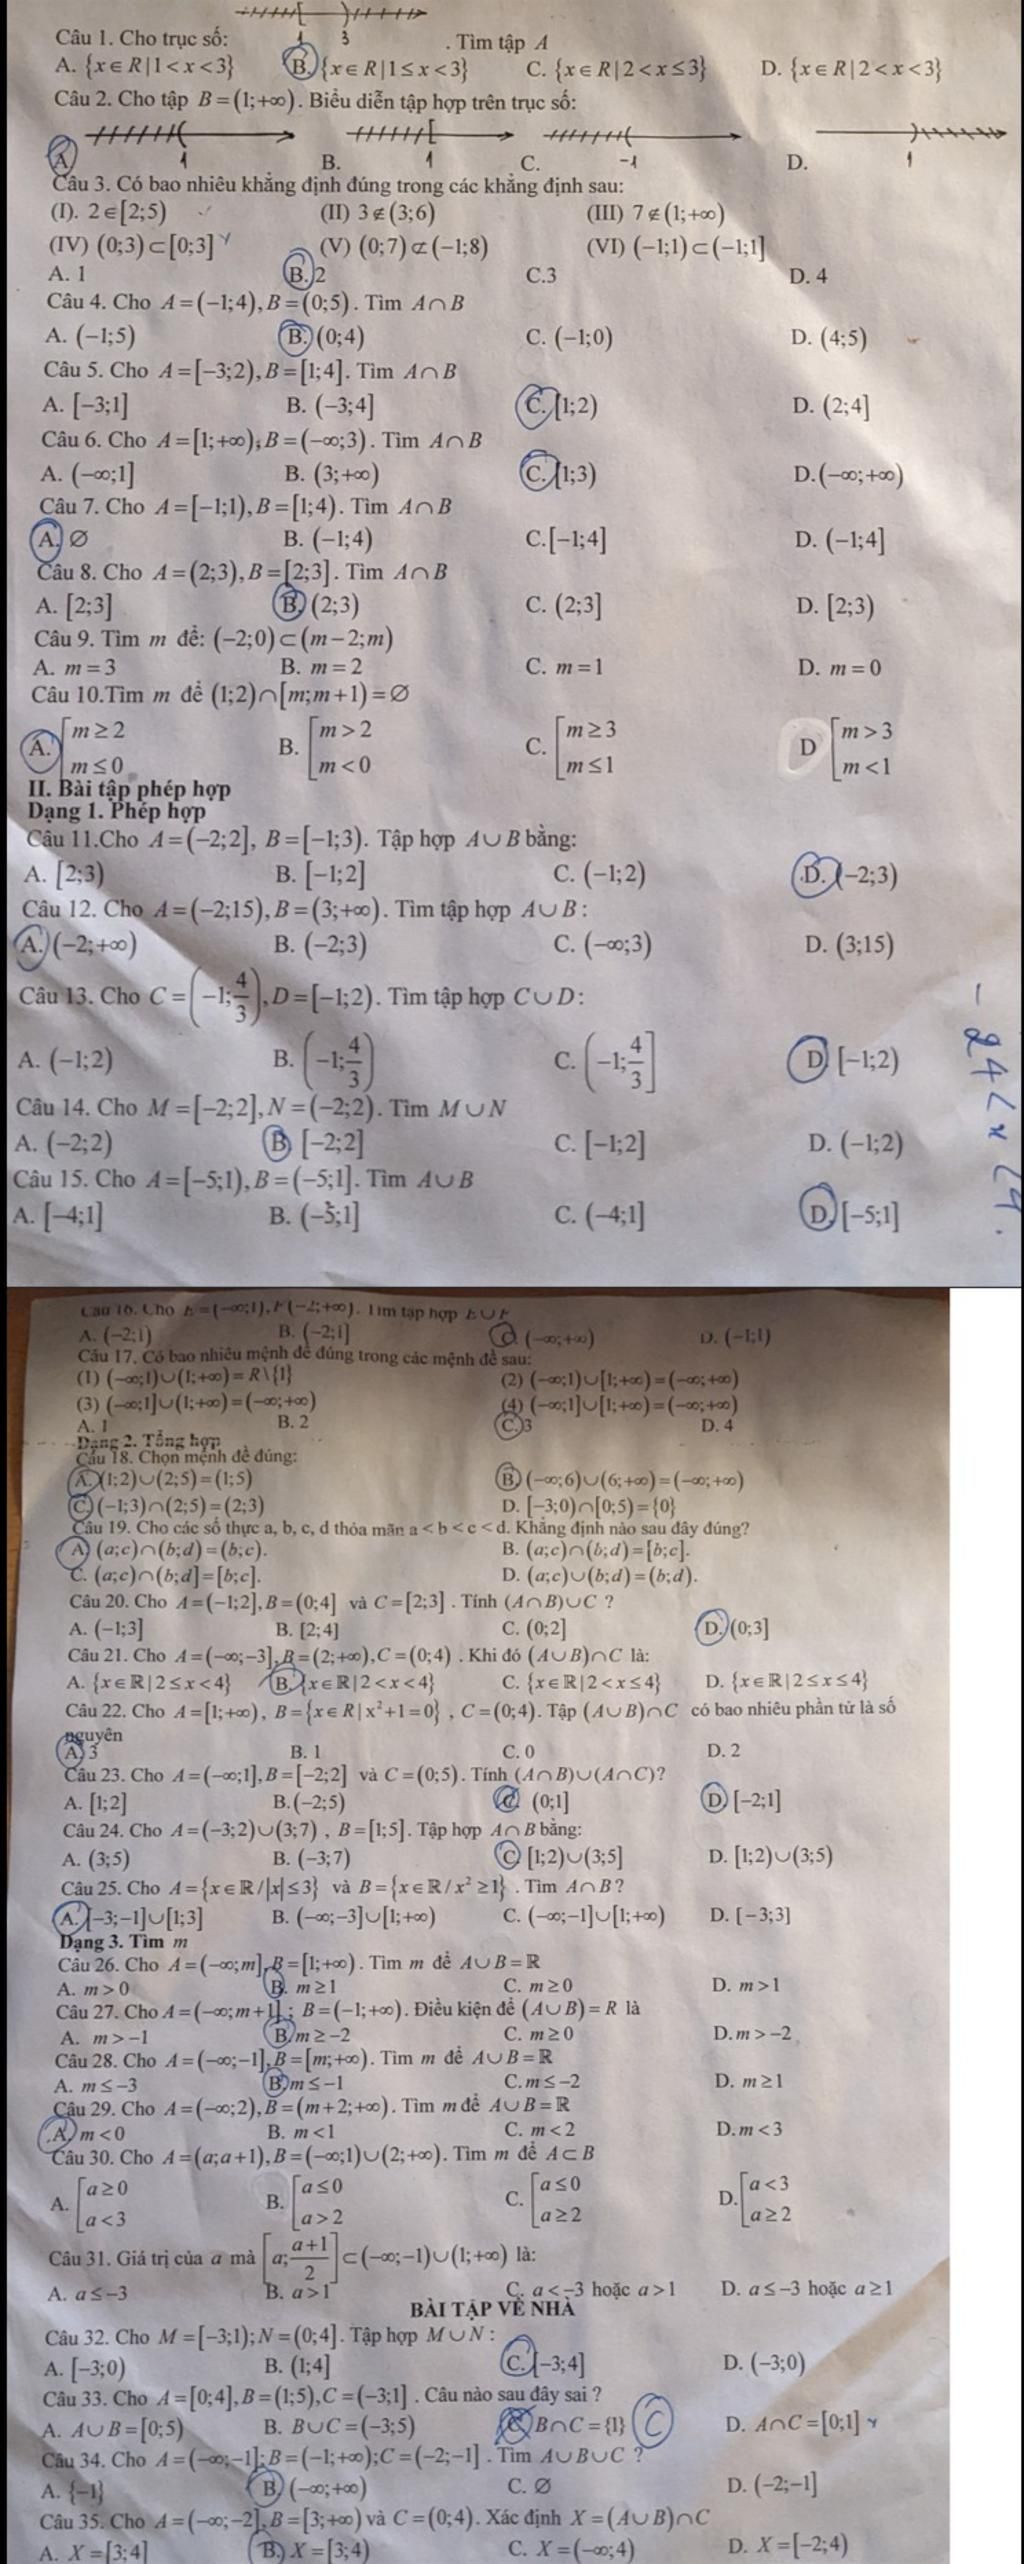 1 3
Câu 1. Cho trục số: . Tìm tập A
A. {x∈R|1<x<3} B. {x∈R|1≤x<3} C. {x∈R|2<x≤3} D. {x∈R|2<x<3}
Câu 2. Cho tập B=(1;+∞). Biểu diễn tập hợp trên trục số:
A. 1 B. 1 C. -1 D. 1
Câu 3. Có bao nhiêu khẳng định đúng trong các khẳng định sau:
(I). 2∈[2;5) (II) 3∉(3;6) (III) 7∉(1;+∞)
(IV) (0;3)⊂[0;3] (V) (0;7)⊄(−1;8) (VI) (−1;1)⊂(−1;1]
A. 1 B. 2 C.3 D. 4
Câu 4. Cho A=(−1;4),B=(0;5). Tìm A∩B
A. (−1;5) B. (0;4) C. (−1;0) D. (4;5)
Câu 5. Cho A=[−3;2),B=[1;4]. Tìm A∩B
A. [−3;1] B. (−3;4] C. [1;2) D. (2;4]
Câu 6. Cho A=[1;+∞);B=(−∞;3). Tìm A∩B
A. (−∞;1] B. (3;+∞) C. [1;3) D.(−∞;+∞)
Câu 7. Cho A=[−1;1),B=[1;4). Tìm A∩B
A. ∅ B. (−1;4) C.[−1;4] D. (−1;4]
Câu 8. Cho A=(2;3),B=[2;3]. Tìm A∩B
A. [2;3] B. (2;3) C. (2;3] D. [2;3)
Câu 9. Tìm m để: (−2;0)⊂(m−2;m)
A. m=3 B. m=2 C. m=1 D. m=0
Câu 10.Tìm m để (1;2)∩[m;m+1)=∅
A. [m≥2 B. [m>2 C. [m≥3 D [m>3
m≤0 m<0 m≤1 m<1
II. Bài tập phép hợp
Dạng 1. Phép hợp
Câu 11.Cho A=(−2;2], B=[−1;3). Tập hợp A∪B bằng:
A. [2;3) B. [−1;2] C. (−1;2) D. (−2;3)
Câu 12. Cho A=(−2;15),B=(3;+∞). Tìm tập hợp A∪B:
A. (−2;+∞) B. (−2;3) C. (−∞;3) D. (3;15)
Câu 13. Cho C=(−1;4/3),D=[−1;2). Tìm tập hợp C∪D:
A. (−1;2) B. (−1;4/3) C. (−1;4/3] D. [−1;2)
Câu 14. Cho M=[−2;2],N=(−2;2). Tìm M∪N
A. (−2;2) B. [−2;2] C. [−1;2] D. (−1;2)
Câu 15. Cho A=[−5;1),B=(−5;1]. Tìm A∪B
A. [−4;1] B. (−5;1] C. (−4;1] D. [−5;1]
Câu 16. Cho E=(−∞;1),F(−2;+∞). Tìm tập hợp E∪F
A. (−2;1) B. (−2;1] C. (−∞;+∞) D. (−1;1)
Câu 17. Có bao nhiêu mệnh đề đúng trong các mệnh đề sau:
(1) (−∞;1)∪(1;+∞)=R\{1} (2) (−∞;1)∪[1;+∞)=(−∞;+∞)
(3) (−∞;1]∪(1;+∞)=(−∞;+∞) (4) (−∞;1]∪[1;+∞)=(−∞;+∞)
A. 1 B. 2 C. 3 D. 4
Dạng 2. Tổng hợp
Câu 18. Chọn mệnh đề đúng:
A. (1;2)∪(2;5)=(1;5) B. (−∞;6)∪(6;+∞)=(−∞;+∞)
C. (−1;3)∩(2;5)=(2;3) D. [−3;0)∩[0;5)={0}
Câu 19. Cho các số thực a, b, c, d thỏa mãn a < b < c < d. Khẳng định nào sau đây đúng?
A. (a;c)∩(b;d)=(b;c). B. (a;c)∩(b;d)=[b;c].
C. (a;c)∩(b;d]=[b;c]. D. (a;c)∪(b;d)=(b;d).
Câu 20. Cho A=(−1;2],B=(0;4] và C=[2;3]. Tính (A∩B)∪C ?
A. (−1;3] B. [2;4] C. (0;2] D. (0;3]
Câu 21. Cho A=(−∞;−3],B=(2;+∞),C=(0;4). Khi đó (A∪B)∩C là:
A. {x∈ℝ|2≤x<4} B. {x∈ℝ|2<x<4} C. {x∈ℝ|2<x≤4} D. {x∈ℝ|2≤x≤4}
Câu 22. Cho A=[1;+∞), B={x∈R|x²+1=0}, C=(0;4). Tập (A∪B)∩C có bao nhiêu phần tử là số
nguyên
A. 3 B. 1 C. 0 D. 2
Câu 23. Cho A=(−∞;1],B=[−2;2] và C=(0;5). Tính (A∩B)∪(A∩C)?
A. [1;2] B.(−2;5) C. (0;1] D. [−2;1]
Câu 24. Cho A=(−3;2)∪(3;7), B=[1;5]. Tập hợp A∩B bằng:
A. (3;5) B. (−3;7) C. [1;2)∪(3;5] D. [1;2)∪(3;5)
Câu 25. Cho A={x∈ℝ/|x|≤3} và B={x∈ℝ/x²≥1}. Tìm A∩B?
A. [−3;−1]∪[1;3] B. (−∞;−3]∪[1;+∞) C. (−∞;−1]∪[1;+∞) D. [−3;3]
Dạng 3. Tìm m
Câu 26. Cho A=(−∞;m],B=[1;+∞). Tìm m để A∪B=ℝ
A. m>0 B. m≥1 C. m≥0 D. m>1
Câu 27. Cho A=(−∞;m+1]; B=(−1;+∞). Điều kiện để (A∪B)=R là
A. m>−1 B. m≥−2 C. m≥0 D. m>−2
Câu 28. Cho A=(−∞;−1],B=[m;+∞). Tìm m để A∪B=ℝ
A. m≤−3 B. m≤−1 C. m≤−2 D. m≥1
Câu 29. Cho A=(−∞;2),B=(m+2;+∞). Tìm m để A∪B=ℝ
A. m<0 B. m<1 C. m<2 D. m<3
Câu 30. Cho A=(a;a+1),B=(−∞;1)∪(2;+∞). Tìm m để A⊂B
A. [a≥0 B. [a≤0 C. [a≤0 D. [a<3
a<3 a>2 a≥2 a≥2
Câu 31. Giá trị của a mà [a;(a+1)/2]⊂(−∞;−1)∪(1;+∞) là:
A. a≤−3 B. a>1 C. a<−3 hoặc a>1 D. a≤−3 hoặc a≥1
BÀI TẬP VỀ NHÀ
Câu 32. Cho M=[−3;1);N=(0;4]. Tập hợp M∪N:
A. [−3;0) B. (1;4] C. [−3;4] D. (−3;0)
Câu 33. Cho A=[0;4],B=(1;5),C=(−3;1]. Câu nào sau đây sai ?
A. A∪B=[0;5) B. B∪C=(−3;5) C. B∩C={1} C D. A∩C=[0;1]
Câu 34. Cho A=(−∞;−1];B=(−1;+∞);C=(−2;−1]. Tìm A∪B∪C ?
A. {−1} B. (−∞;+∞) C. ∅ D. (−2;−1]
Câu 35. Cho A=(−∞;−2],B=[3;+∞) và C=(0;4). Xác định X=(A∪B)∩C
A. X=[3;4] B. X=[3;4) C. X=(−∞;4) D. X=[−2;4)